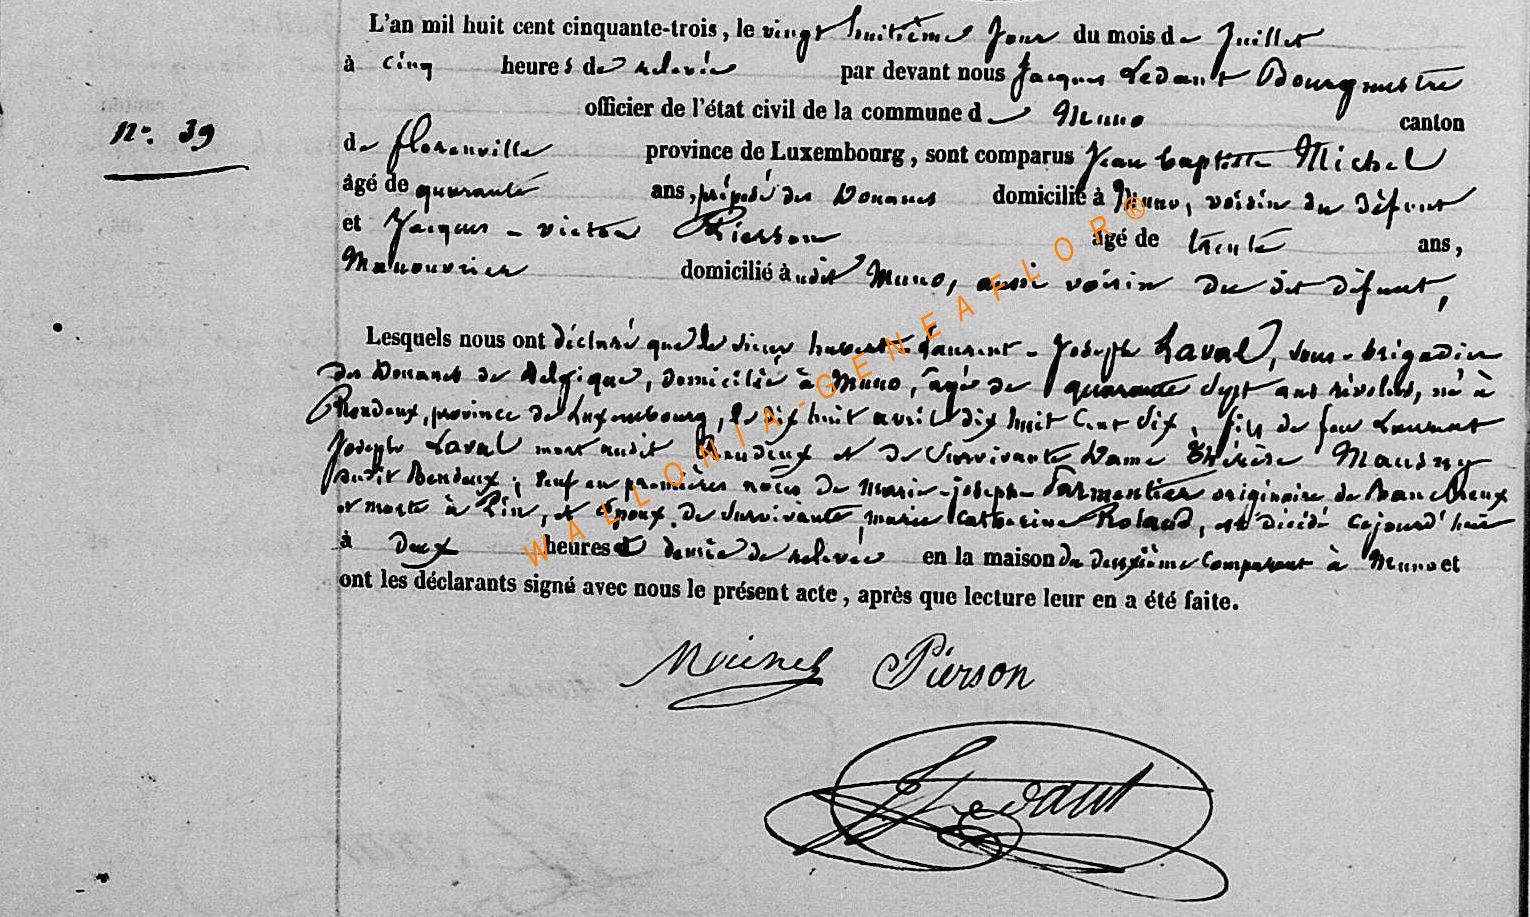 L'an mil huit cent cinquante-trois, le vingt huitième jour du mois de Juillet
à cinq heures de relevée par devant nous Jacques Ledant Bourgmestre
officier de l'état civil de la commune de Muno canton
N°. 39
de florenville province de Luxembourg, sont comparus Jean baptiste Michel
âgé de quarante ans, préposé des Douanes domicilié à Muno, voisin du défunt
et Jacques - victor Pierson âgé de trente ans,
Manouvrier domicilié à udit Muno, aussi voisin du dit défunt,
Lesquels nous ont déclaré que le sieur hubert - Laurent - Joseph Laval, sous-brigadier
des Douanes de Belgique, domicilié à Muno, âgé de quarante sept ans révolus, né à
Rendeux, province de Luxembourg, le dix huit avril dix huit cent six, fils de feu Laurent
Joseph Laval mort audit Rendeux et de survivante Dame Thérèse
dudit Rendeux; veuf en premières noces de Marie-joseph Parmentier originaire de
et morte à Pin, et époux de survivante marie Catherine Roland, est décédé cejourd'hui
à deux heures et demie de relevée en la maison du deuxième comparant à Muno et
ont les déclarants signé avec nous le présent acte, après que lecture leur en a été faite.
Pierson
Ledant
WALLONIA-GENEAFLOR®